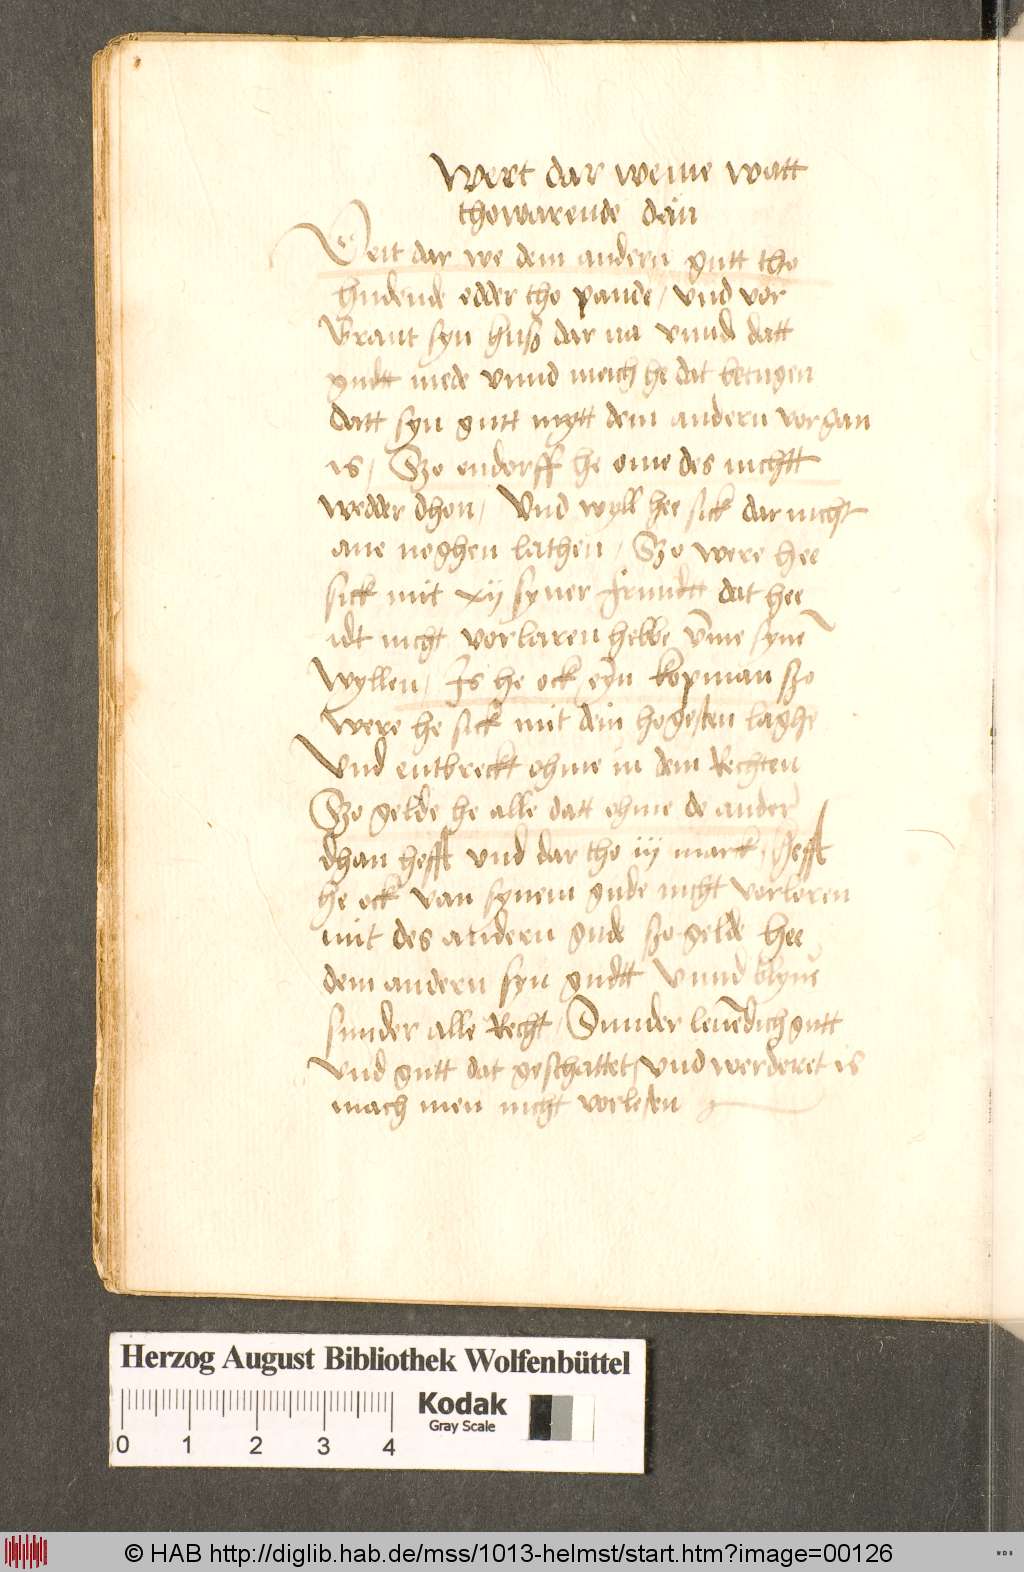 Wert dar weme watt
thowarende dan
Deit dar we dem andern gutt tho
hudende edder tho pande / vnd vor
Brant syn huß dar na vnnd datt
gudtt mede vnnd mach he dat betugen
datt syn gutt mytt dem andern vorgan
is / Szo endorff he ome des nichtt
wedder dhon / Vnd wyll hee sick dar nicht
ane noghen lathen / Szo were hee
sick mit xij syner frundtt dat hee
idt nicht vorlaren hebbe vme syne
wyllen / Is he ock eyn kopman szo
were he sick mit dem hogesten laghe
Vnd entbreckt ohme in dem Rechten
Szo gelde he alle datt ohme de ander
dhan hefft vnd dar tho iij mark / Hefft
he ock van synem gude nicht vorloren
mit des andern gude szo gelde hee
dem andern syn gudtt Vnnd blyue
sunder alle Recht / Sunder leuedich gutt
vnd gutt dat geschattet / vnd werderet is
mach men nicht vorlesen
Herzog August Bibliothek Wolfenbüttel
Kodak
Gray Scale
0 1 2 3 4
© HAB http://diglib.hab.de/mss/1013-helmst/start.htm?image=00126